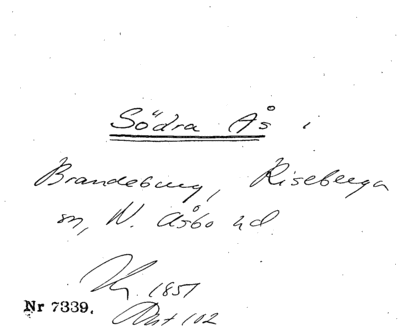 Södra Ås i
Brandeburg, Riseberga
sn, N. Åsbo hd
1851
Nr 7339.
102